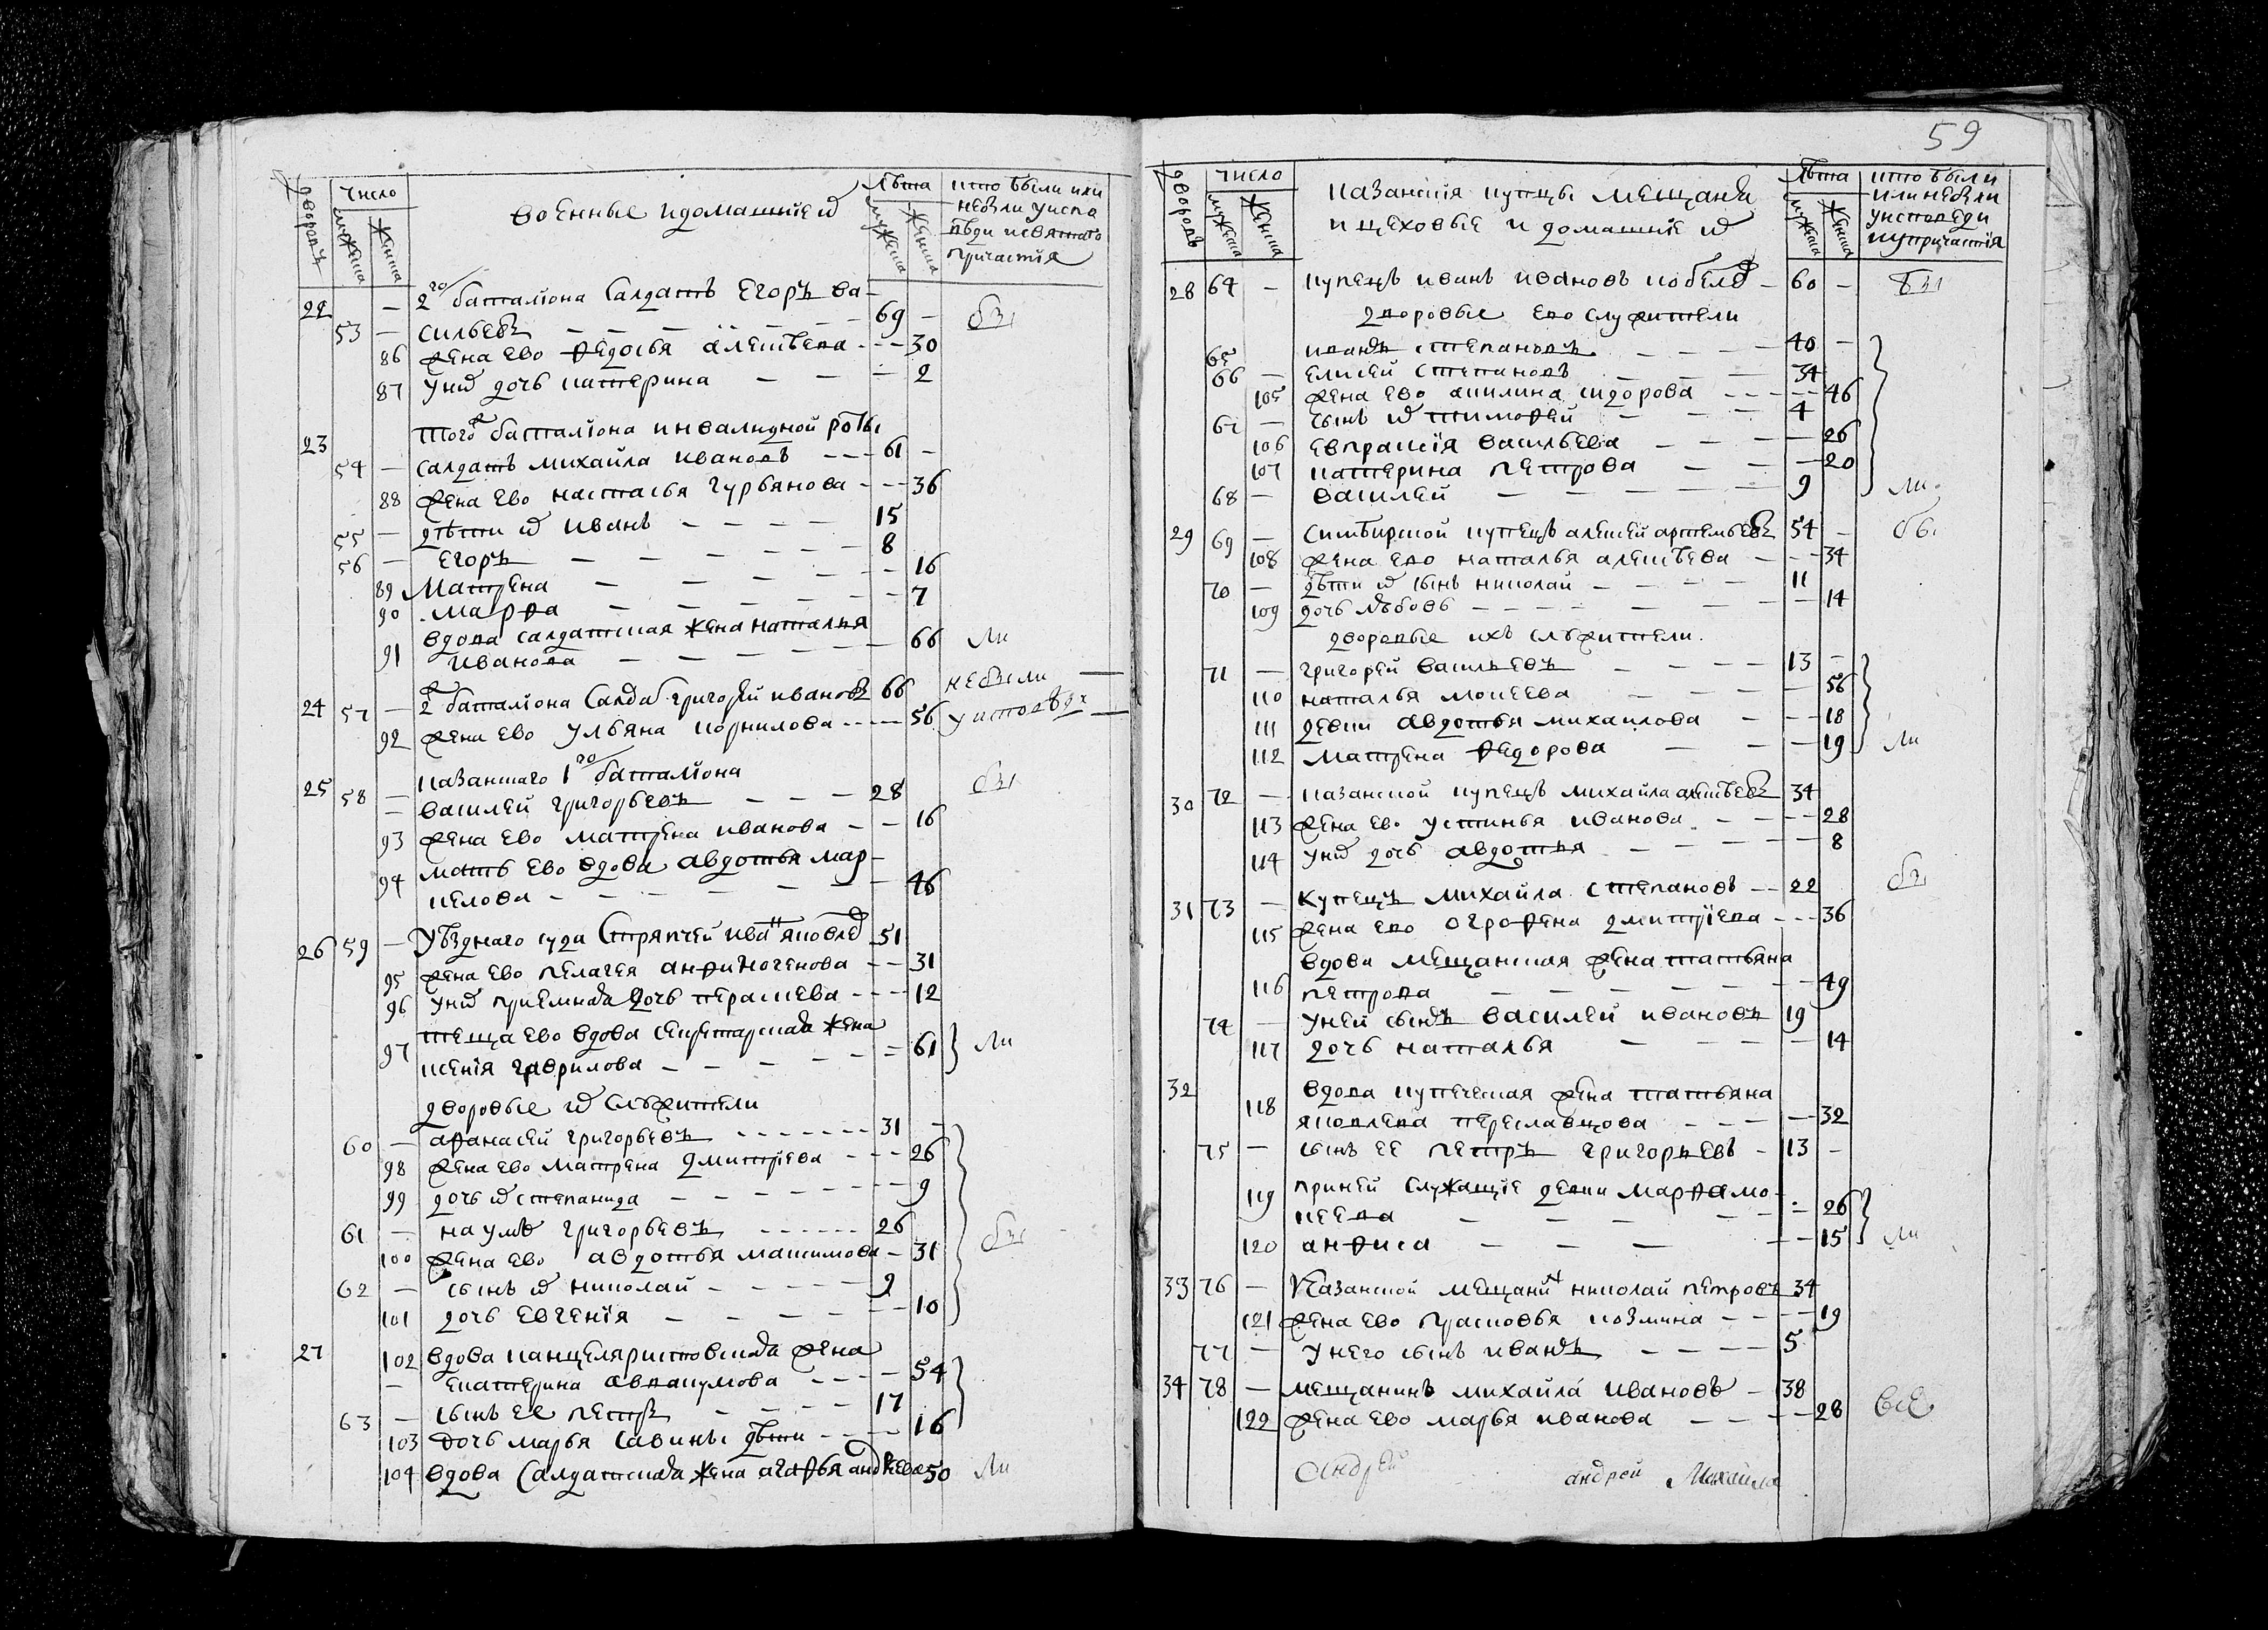 дворовъ
число
мужеска
женска
военные и домашніе их
лѣта
мужеска
женска
кто были или
не были у испо
вѣди и святаго
причастія
22 — 2го баталіона Салдатъ Егоръ ва-
53 — сильевъ — — — 69 — был
86 жена ево Федосья алексѣева — 30
87 у них дочь катерина — — — 2
23 того ж баталіона инвалидной роты
54 — салдатъ михайла ивановъ — 61 —
88 жена ево настасья гурьянова — 36
55 — дѣти их иванъ — — 15
56 — Егоръ — — — 8
89 Матрена — — — 16
90 марфа — — — 7
вдова салдатская жена наталья
91 иванова — — — 66 ли
24 57 — 2 баталіона Салда григорей ивановъ 66 не были —
92 жена ево ульяна корнилова — 56 у исповѣди —
казанскаго 1го баталіона
25 58 — василей григорьевъ — — — 28 был
93 жена ево матрена иванова — — 16
94 мать ево вдова авдотья мар-
келова — — — — 46
26 59 — Уѣзднаго суда Стряпчей иван яковлев 51
95 жена ево пелагея анфиногенова — 31
96 у них приемная дочь — 12
97 теща ево вдова секретарская жена
ксенія гаврилова — — — 61 ли
дворовые их служители
60 — афанасей григорьевъ — 31 —
98 жена ево матрена дмитріева — 26
99 дочь их степанида — — — 9
61 — наумъ григорьевъ — 26
100 жена ево авдотья максимова — 31 был
62 — сынъ их николай — — — 9
101 дочь евгенія — — — 10
27 102 вдова канцеляристовская жена
— екатерина аввакумова — 54
63 — сынъ ее петръ — — 17
103 дочь марья савины дѣти — 16
104 вдова Салдатская жена агафья андреева 50 ли
59
дворовъ
число
мужеска
женска
казанскія купцы мещане
и цеховые и домашніе их
лѣта
мужеска
женска
кто были
или не были
у исповеди
и у причастія
28 64 — купецъ иванъ ивановъ кобелев — 60 — был
дворовые ево служители
65 иванъ степановъ — — — 40 —
66 — елисей степановъ — — 34
105 жена ево акилина сидорова — 46
67 — сынъ их тимофей — — — 4
106 евпраксія васильева — — — 26
107 катерина петрова — — — 20
68 — василей — — — 9 ли
29 69 — симбирской купецъ алексей артемьевъ 54 — бы
108 жена ево наталья алексѣева — — 34
70 — дѣти их сынъ николай — — — 11
109 дочь любовь — — — 14
дворовые ихъ служители
71 — григорей васильевъ — — — 13 —
110 наталья мосеева — — — 56
111 девки авдотья михаилова — — 18
112 матрена федорова — — — 19 ли
30 72 — казанской купецъ михайла алексѣевъ 34
113 жена ево устинья иванова — — 28
114 у них дочь авдотья — — — 8
31 73 — купецъ михайла степановъ — 22 был
115 жена ево огрофена дмитріева — 36
вдова мещанская жена татьяна
116 петрова — — — 49
74 — у ней сынъ василей ивановъ 19
117 дочь наталья — — — 14
32 вдова купеческая жена татьяна
118 яковлева переславцова — — — 32
75 — сынъ ее петръ григорьевъ — 13 —
119 при ней служащіе девки марфа мо-
кеева — — — 26
120 анфиса — — — 15 ли
33 76 — Казанской мещанин николай петровъ 34
121 жена ево прасковья козмина — — 19
77 — у него сынъ иванъ — — — 5
34 78 — мещанинъ михайла ивановъ — 38
122 жена ево марья иванова — — — 28 все
Андрей андрей Михайла